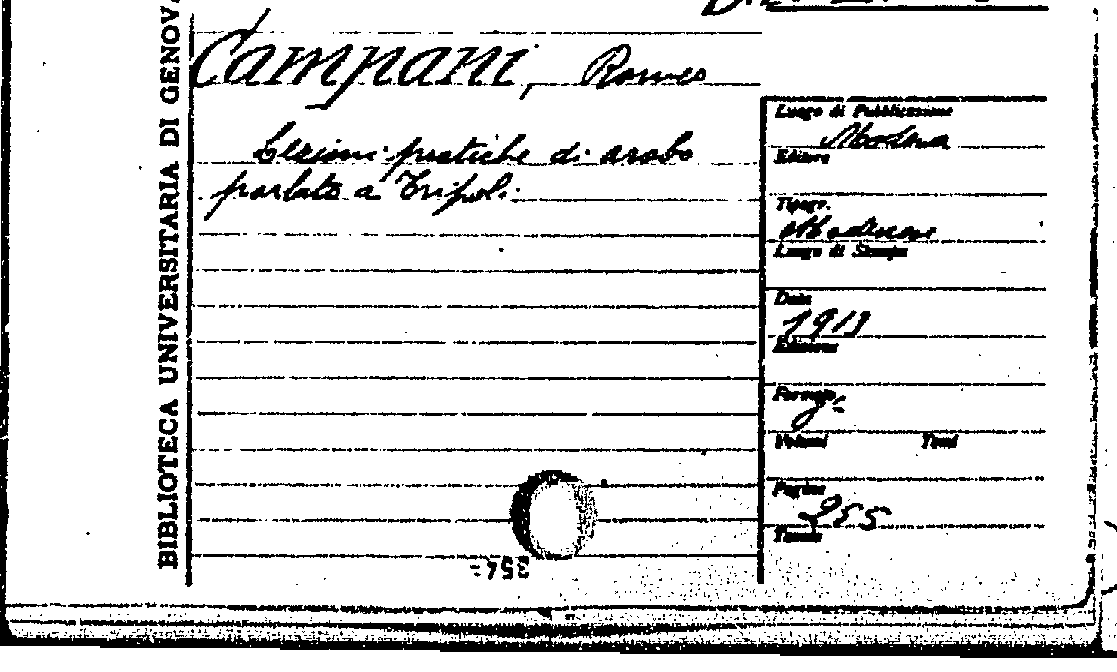 BIBLIOTECA UNIVERSITARIA DI GENOV
Campani, Romeo
Lezioni pratiche di arabo
parlato a Tripoli
Luogo di Pubblicazione
Modena
Editore
Tipogr.
Modenese
Luogo di Stampa
Data
1913
Edizione
Formato
8°
Volumi Tomi
Pagine
255
Tavole
354=